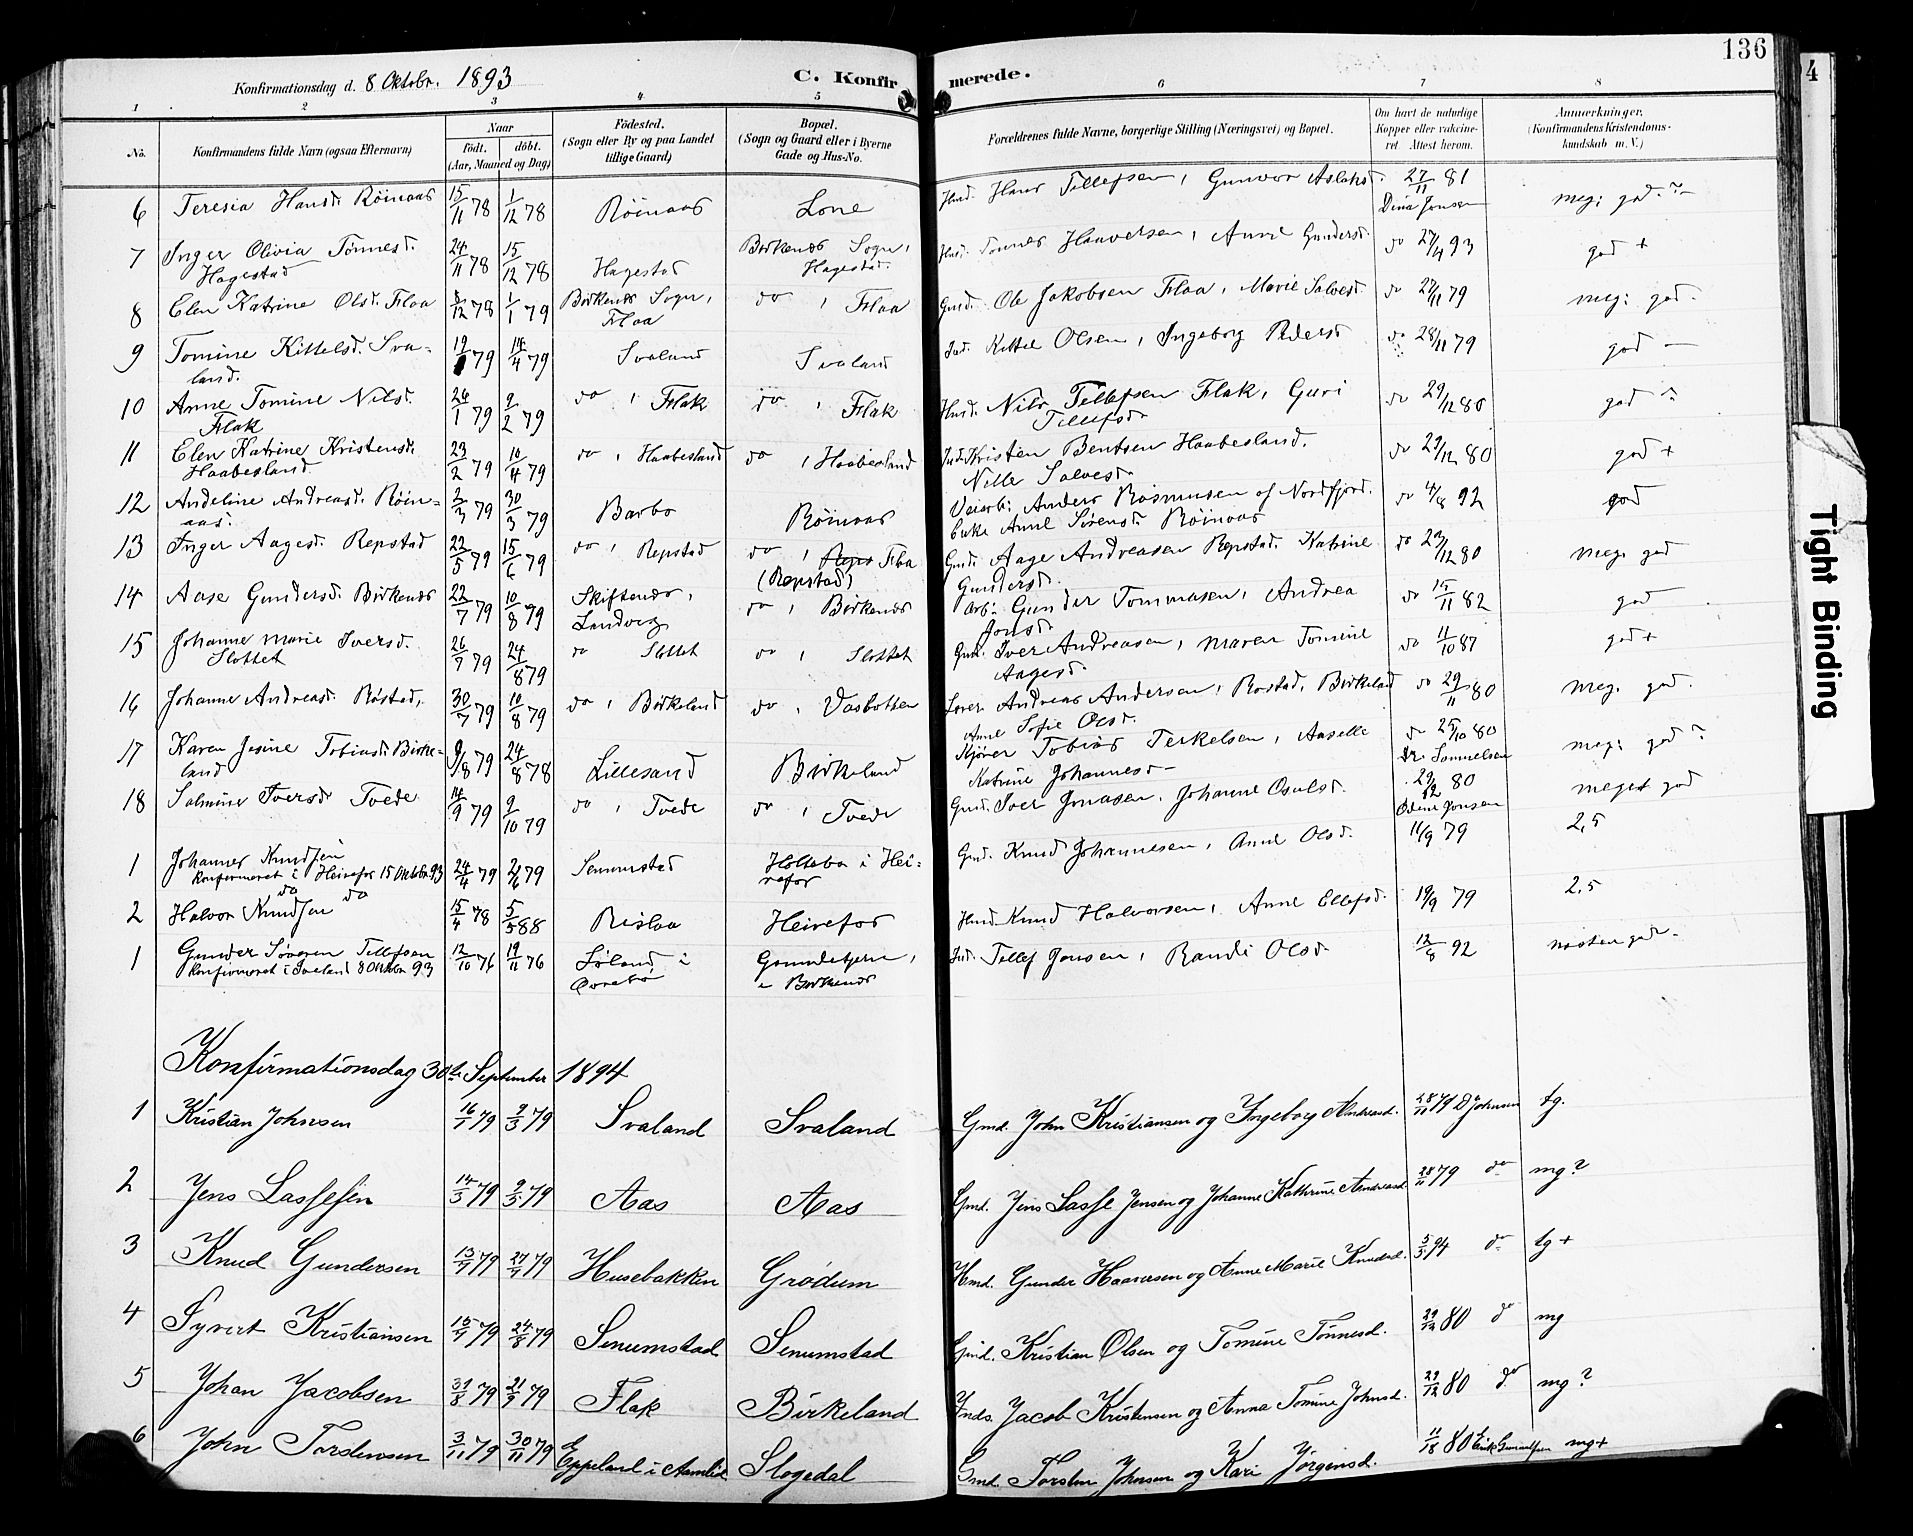 136
4
Tight Binding
Konfirmationsdag d. 8 Oktobr. 1893
C. Konfirmerede.
1 2 3 4 5 6 7 8
No.
Konfirmandens fulde Navn (ogsaa Efternavn)
Naar
födt. döbt.
(Aar, Maaned og Dag)
Födested.
(Sogn eller By og paa Landet
tillige Gaard)
Bopæl.
(Sogn og Gaard eller i Byerne
Gade og Hus-No.
Forældrenes fulde Navne, borgerlige Stilling (Næringsvei) og Bopæl.
Om havt de naturlige
Kopper eller vakcine-
ret. Attest herom.
Anmærkninger.
(Konfirmandens Kristendoms-
kundskab m. V.)
6 Teresia Hansd. Röinaas 15/11 78 1/12 78 Röinaas Lone Husmd. Hans Tellefsen, Gunvor Aslaksd. 27/11 81 meg. god
Dina Jonsen
7 Inger Olivia Tönnesd. 24/11 78 15/12 78 Hagestad Birkenes Sogn, Tönnes Haaversen, Anne Gundersd. do 27/4 93 god +
Hagestad Hagestad.
8 Elen Katrine Olsd. Flaa /12 78 1/1 79 Birkenes Sogn, do, Flaa Gmd. Ole Jakobsen Flaa, Marie Salvesd. do 27/11 79 meg. god.
Flaa
9 Tomine Kittelsd. Sva- 19/ 79 14/4 79 Svaland Svaland Ind. Kittel Olsen, Ingeborg Pedersd. do 28/11 79 god –
land.
10 Anne Tomine Nilsd. 26/1 79 9/2 79 do, Flak do, Flak Husmd. Nils Tellefsen Flak, Guri do 29/12 80 god
Flak Tellefsd.
11 Elen Katrine Kristensd. 23/2 79 10/4 79 do, Haabesland do, Haabesland Ind. Kristen Bentsen Haabesland. do 29/12 80 god +
Haabesland Nille Salvesd.
12 Andeline Andreasd. Röin- 2/3 79 30/3 79 Barbo Röinaas Veiarb. Anders Rasmusen af Nordfjord. do 4/8 92 god
aas. Enke Anne Sörensd. Röinaas
13 Inger Aagesd. Repstad 22/5 79 15/6 79 do, Repstad do, Reps Flaa Gmd. Aage Andreasen Repstad. Katrine do 29/12 80 meg. god
(Repstad) Gundersd.
14 Aase Gundersd. Birkenes 22/7 79 10/8 79 Skiftenes, do, Birkenes Arb. Gunder Tommasen, Andrea do 15/11 82 god
Landvig Jonsd.
15 Johanne Marie Iversd. 26/7 79 24/8 79 do Slottet do, Slottet Gmd. Iver Andreasen, Maren Tomine do 11/10 87 god +
Slottet Aagesd.
16 Johanne Andreasd. Röstad, 30/7 79 10/8 79 do, Birkeland do, Vasbotten Andreas Andersen, Rostad, Birkeland do 29/11 80 meg. god.
Anne Sofie Olsd.
17 Karen Josine Tobiasd. Birke- 9/8 79 24/8 78 Lillesand Birkeland Tobias Terkelsen, Aaselle do 25/10 80 meg. god
land Katrine Johannesd. Dr. Sammelsen
18 Salmine Iversd. Tvede 14/9 79 9/10 79 do, Tvede do, Tvede Gmd. Iver Jonasen, Johanne Osulsd. 29/12 80 meget god
Jonsen
1 Johannes Knudsen 24/4 79 2/6 79 Senumstad i Hei- Gmd. Knud Johannesen, Anne Olsd. 11/9 79 2,5
konfirmeret i Heirefos 15 Oktobr. 93 refos
do do
2 Halvor Knudsen 15/4 78 5/5 88 Rislaa Heirefos Husmd. Knud Halvorsen, Anne Ellefsd. 19/9 79 2,5
1 Gunder Sövren Tellefsen 12/10 76 19/11 76 i Grundetjern, Ind. Tellef Jonsen, Randi Olsd. 12/8 92 næsten god.
konfirmeret i Iveland 8 Oktobr. 93 Övrebö i Birkenes
Konfirmationsdag 30te September 1894
1 Kristian Johnsen 16/1 79 9/3 79 Svaland Svaland Gmd. John Kristiansen og Ingeborg Andreasd. 28/11 79 D Johnsen tg.
2 Jens Lassesen 14/3 79 9/5 79 Aas Aas Gmd. Jens Lasse Jensen og Johanne Kathrine Andreasd. 28/11 79 do mg?
3 Knud Gundersen 13/4 79 27/4 79 Husebakken Grödum Hmd. Gunder Haaversen og Anne Marie Knudsd. 5/5 94 do tg +
4 Syvert Kristiansen 15/7 79 24/8 79 Senumstad Senumstad Gmd. Kristian Olsen og Tomine Tönnesd. 29/12 80 do mg
5 Johan Jacobsen 31/8 79 21/9 79 Flak Birkeland Inds. Jacob Kristensen og Anna Tomine Johnsd. 29/12 80 do mg?
6 John Torstensen 3/11 79 30/11 79 Eppeland i Aamlid Slogedal Gmd. Torsten Johnsen og Kari Jörgensd. 80 mg+